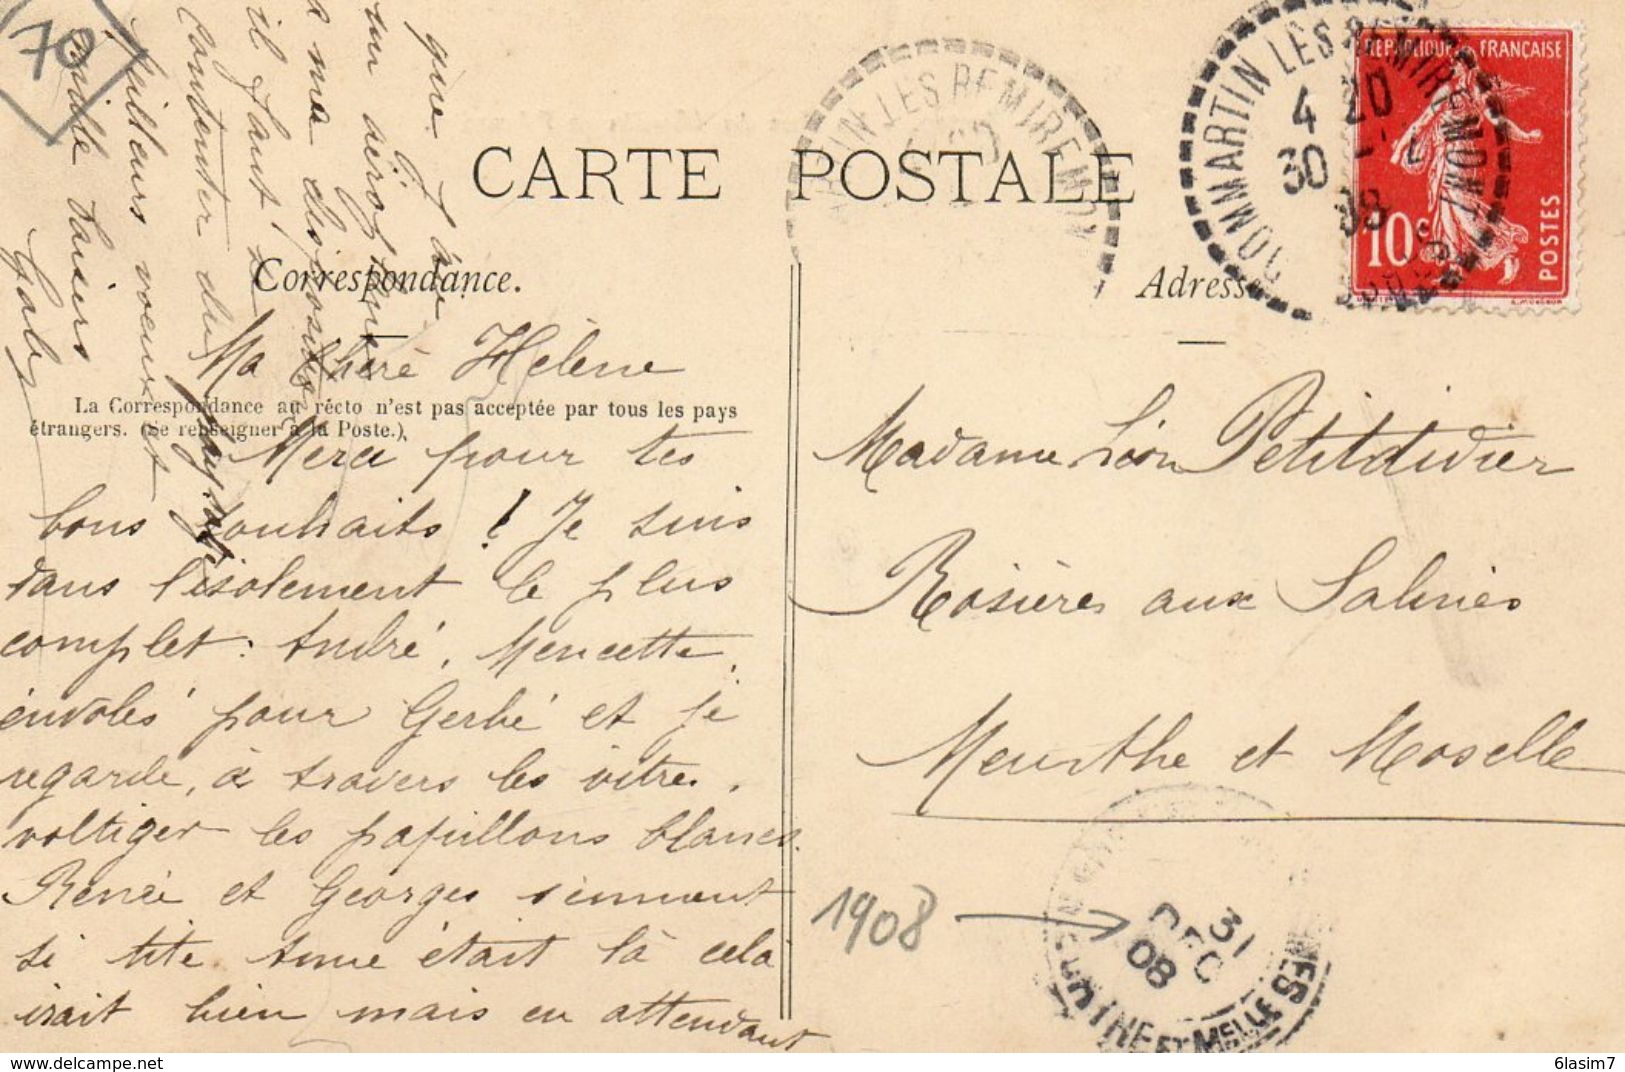 70
CARTE POSTALE
Correspondance.
Adresse
La Correspondance au recto n'est pas acceptée par tous les pays
étrangers. (Se renseigner à la Poste.)
Ma chère Hélène
Merci pour tes
bons souhaits ! Je suis
dans l'isolement le plus
complet : André, Mencette,
envolés pour Gerbé et je
regarde, à travers les vitres,
voltiger les papillons blancs.
Renée et Georges s'ennuient
si tite Anne était là cela
irait bien mais en attendant
que j'aie
un aéroplane
à ma disposition
il faut se
contenter du
Meilleurs voeux et
mille baisers
Gaby
REPUBLIQUE FRANÇAISE
10 c
POSTES
DOMMARTIN LES REMIREMONT
4 20
30
08
VOSGES
TIN LES REMIREMON
Madame Léon Petitdidier
Rosières aux Salines
Meurthe et Moselle
1908
31
DEC
08
MEURTHE ET MELLE
delcampe.net
6lasim7